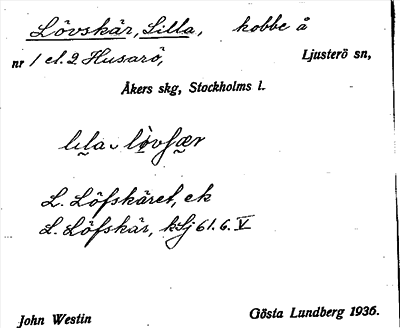 Lövskär, Lilla, kobbe å
nr 1 el. 2 Husarö, Ljusterö sn,
Åkers skg, Stockholms l.
lıla lövsær
L. Löfskäret, ek
L. Löfskär, kSj 61.6.V
John Westin Gösta Lundberg 1936.